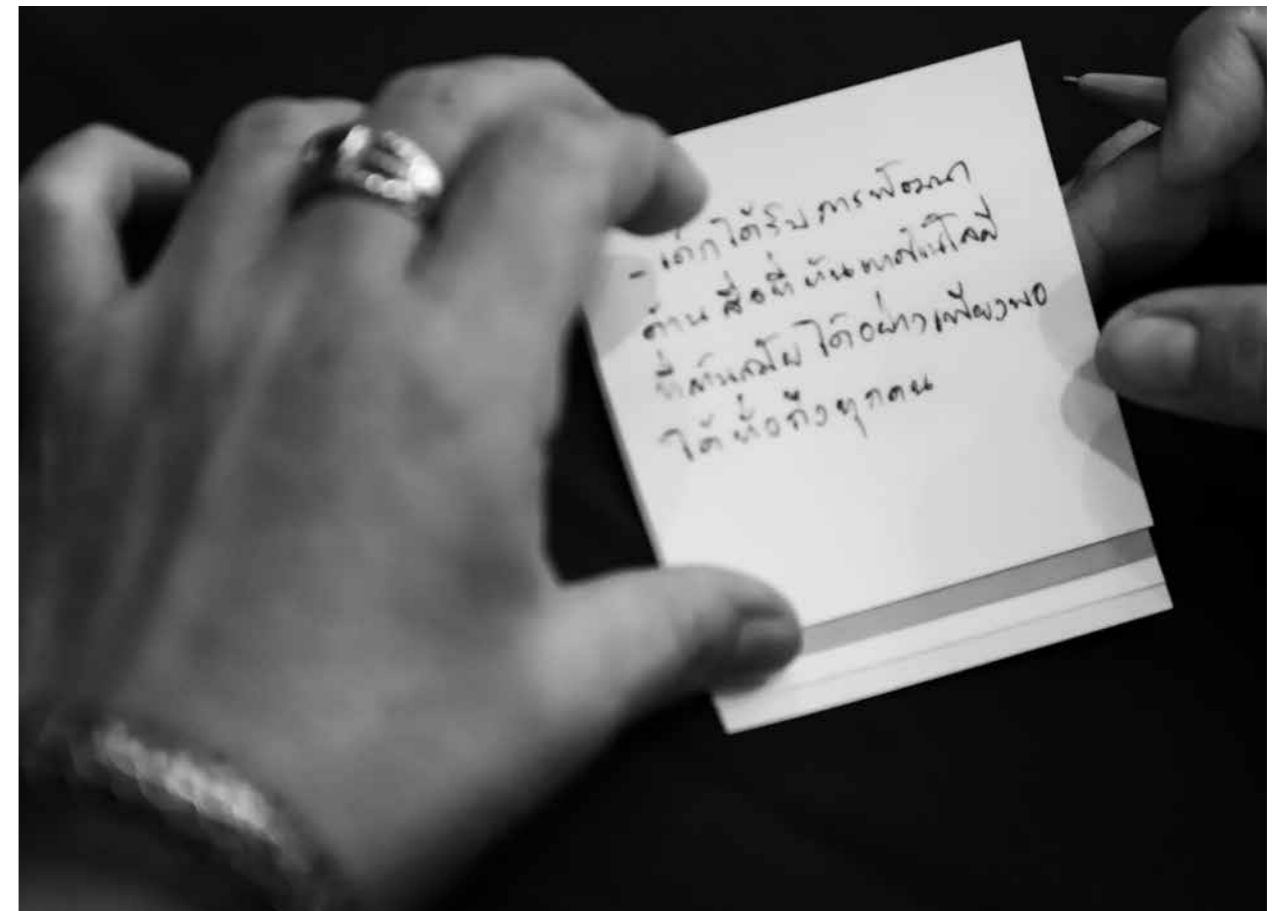 - เด็กได้รับการพัฒนา
ด้านสื่อที่ทันเทคโนโลยี
ที่ทันสมัยได้อย่างเพียงพอ
ได้ทั่วถึงทุกคน